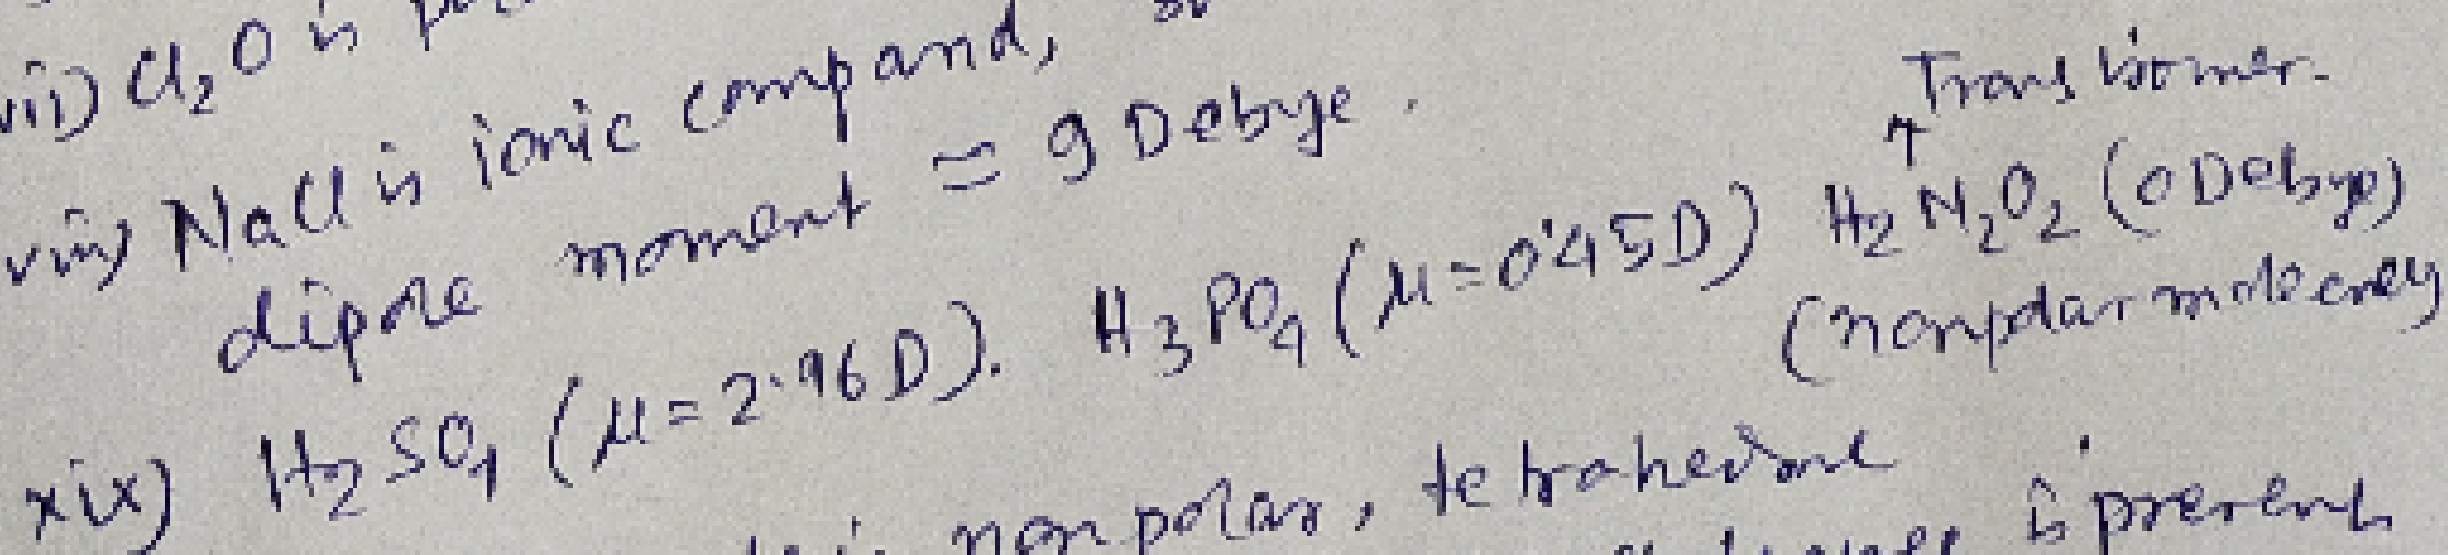 vii) Cl₂O is
viii) NaCl is ionic compand,
dipole moment ≃ 9 Debye.
Trans isomer.
xix) H₂SO₄ (μ=2.96D). H₃PO₄ (μ=0.45D) H₂N₂O₂ (0 Debye)
(nonpolar molecule)
nonpolar, tetrahedral
is present